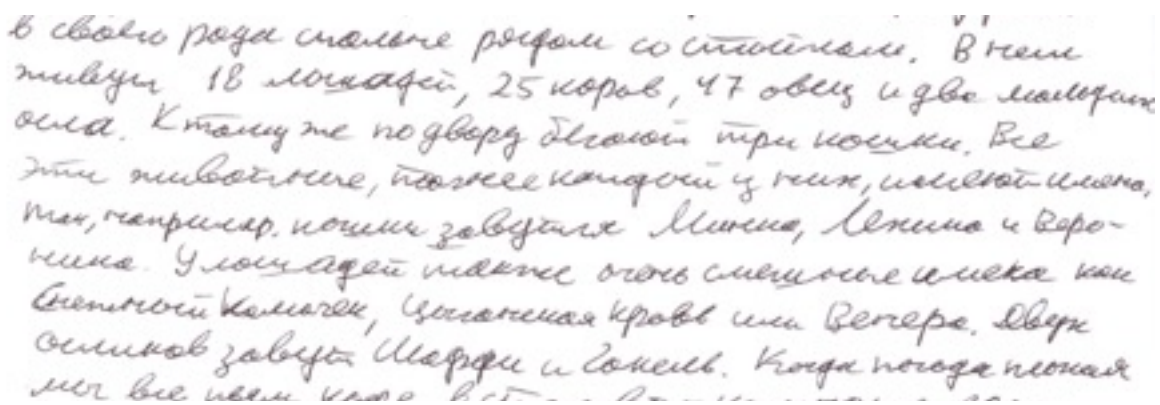 в своего рода спальне рядом со стойлам. В нем
живут 18 лошадей, 25 коров, 47 овец и два молодых
осла. К тому же по двору бегают три кошки. Все
эти животные, точнее каждый из них, имеют имена,
так, например. кошки завутся Минка, и Веро-
ника. У лошадей также очень смешные имена как
Снежный Комочек, Цыганская кровь или Венера. Двух
осликов завут и Гокель. Когда погода плохая
мы все пьем кофе